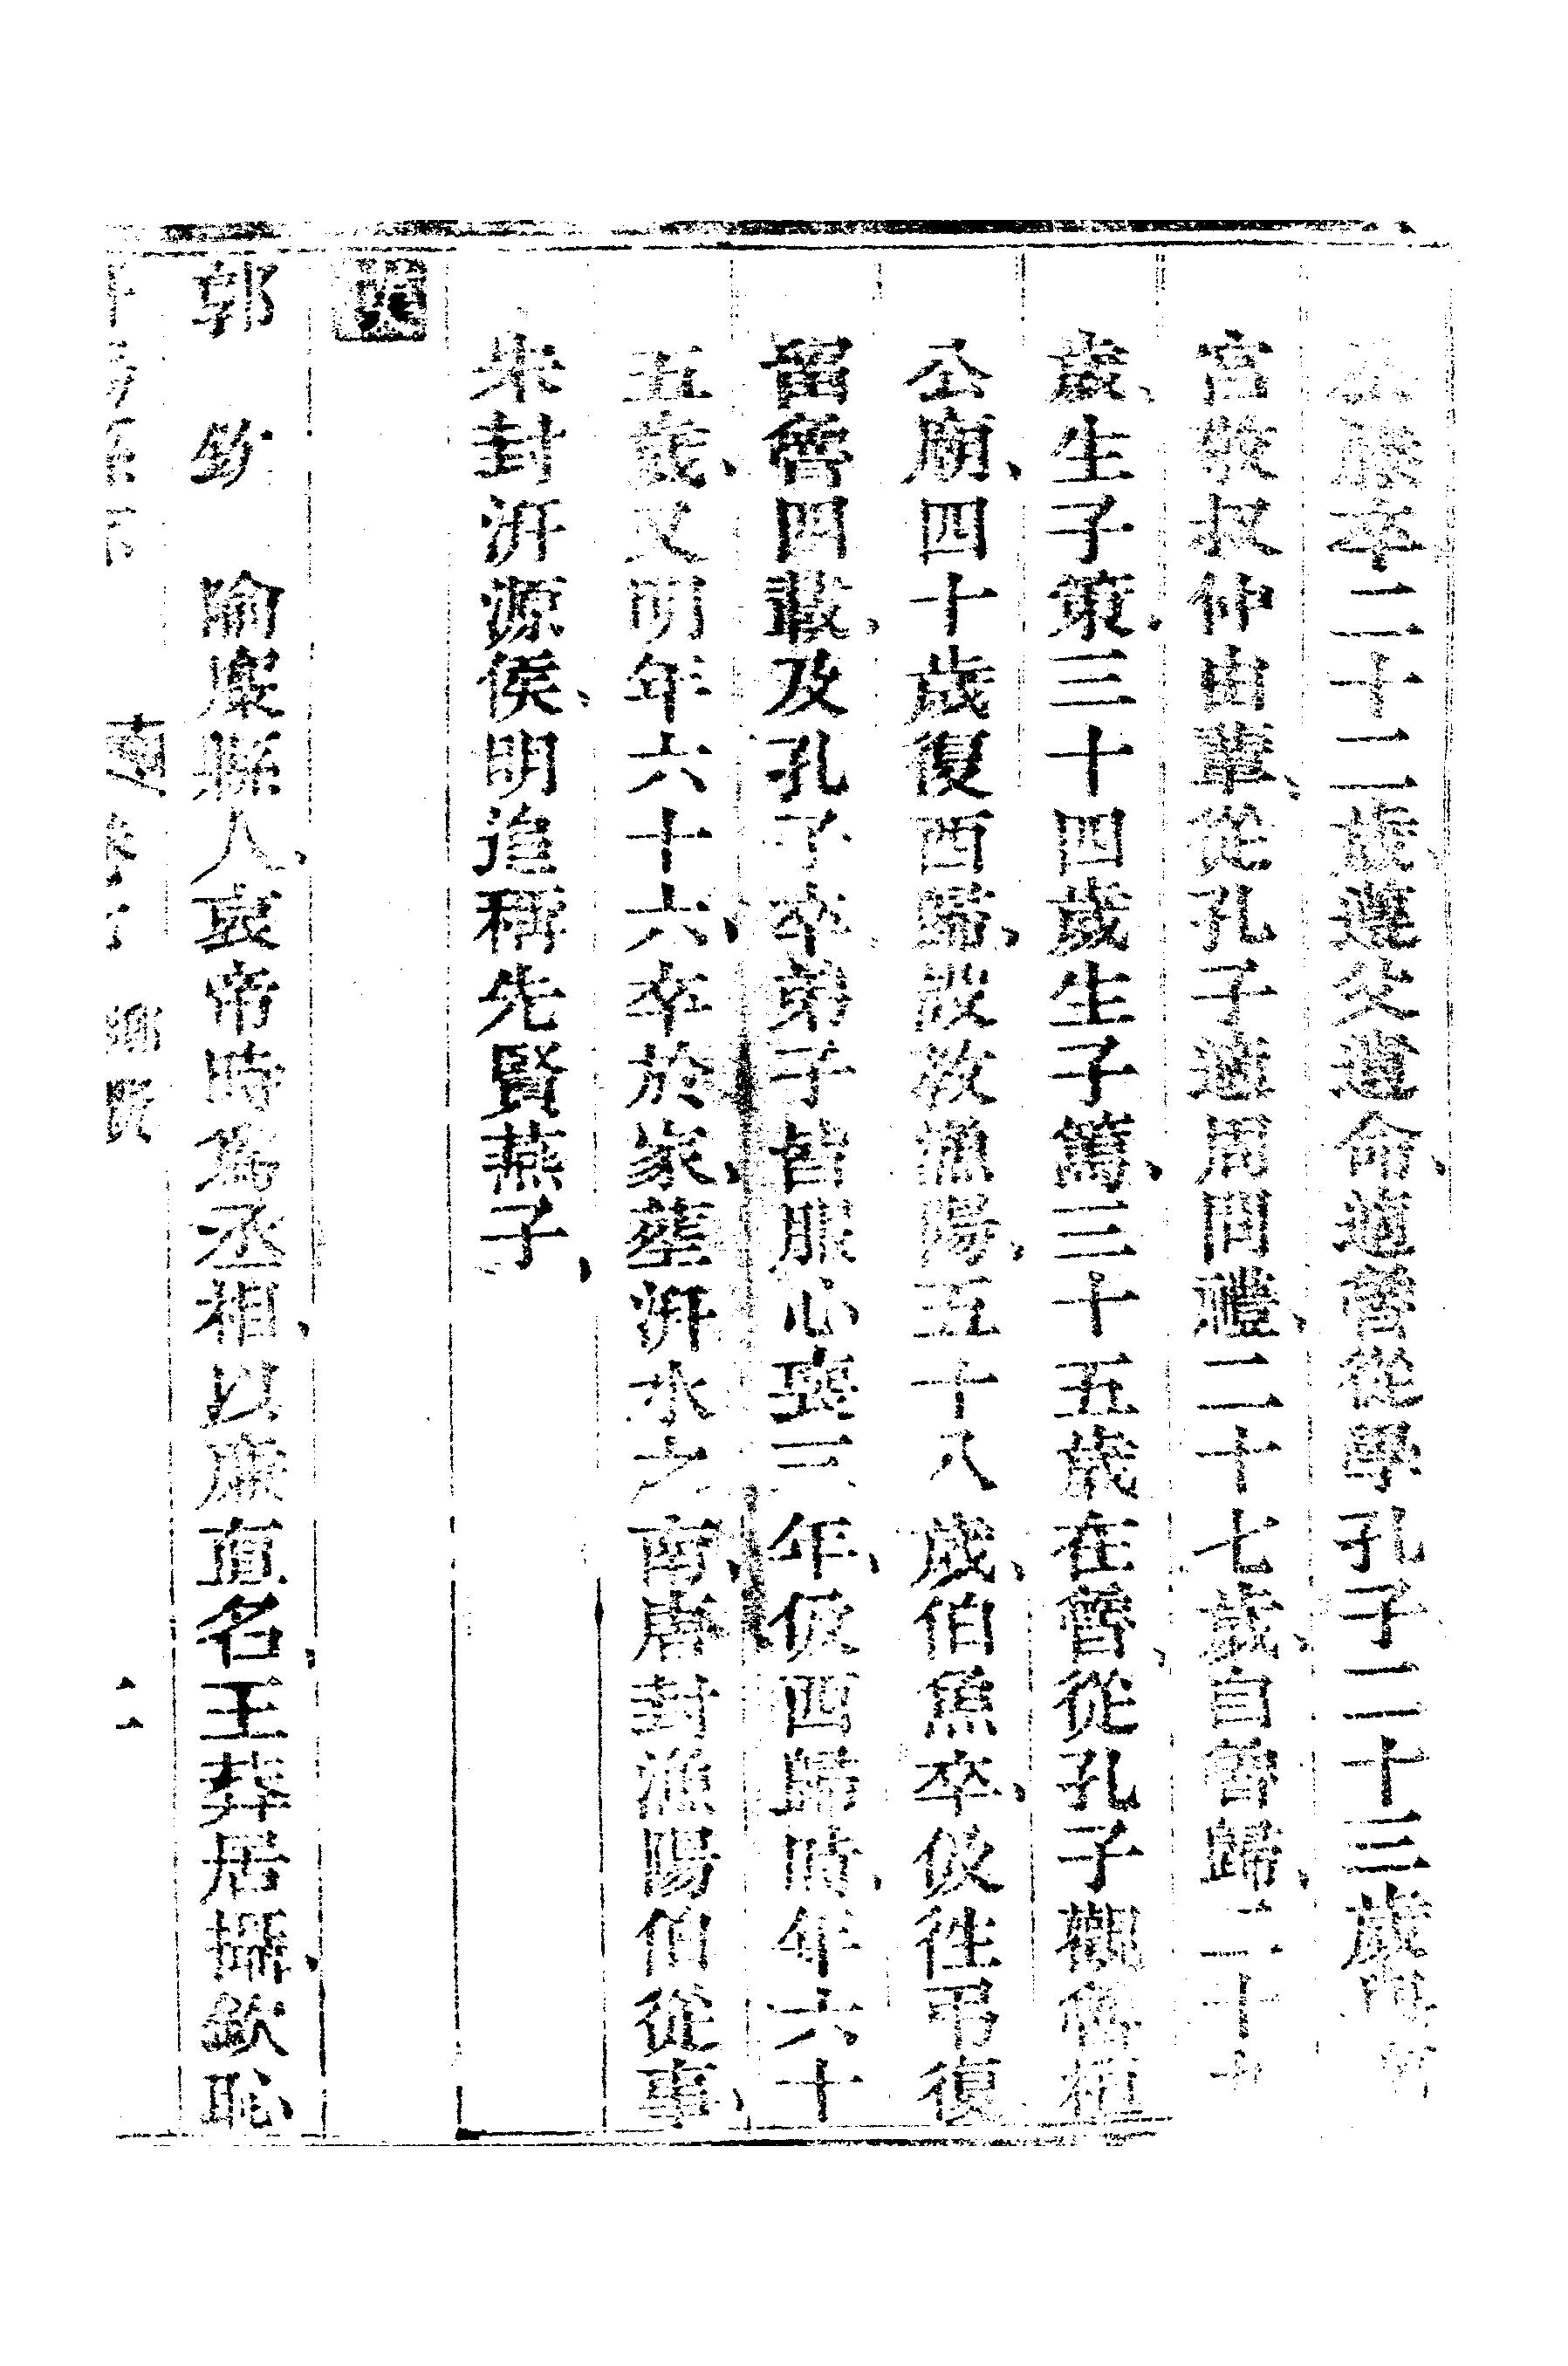 卒二十二歲遵父遺命適魯從學孔子二十三歲
宮敬叔仲由輩從孔子適周問禮二十七歲自魯歸二十
歲生子策三十四歲生子篤三十五歲在魯從孔子觀魯桓
公廟四十歲復西歸設教漁陽五十八歲伯魚卒伋往弔復
留魯四載及孔子卒弟子皆服心喪三年伋西歸時年六十
五歲又明年六十六卒於家葬汧水之南唐封漁陽伯從事
宋封汧源侯明追稱先賢燕子
漢
郭欽 隃麋縣人哀帝時為丞相以廉直名王莽居攝欽恥
鄉賢
二